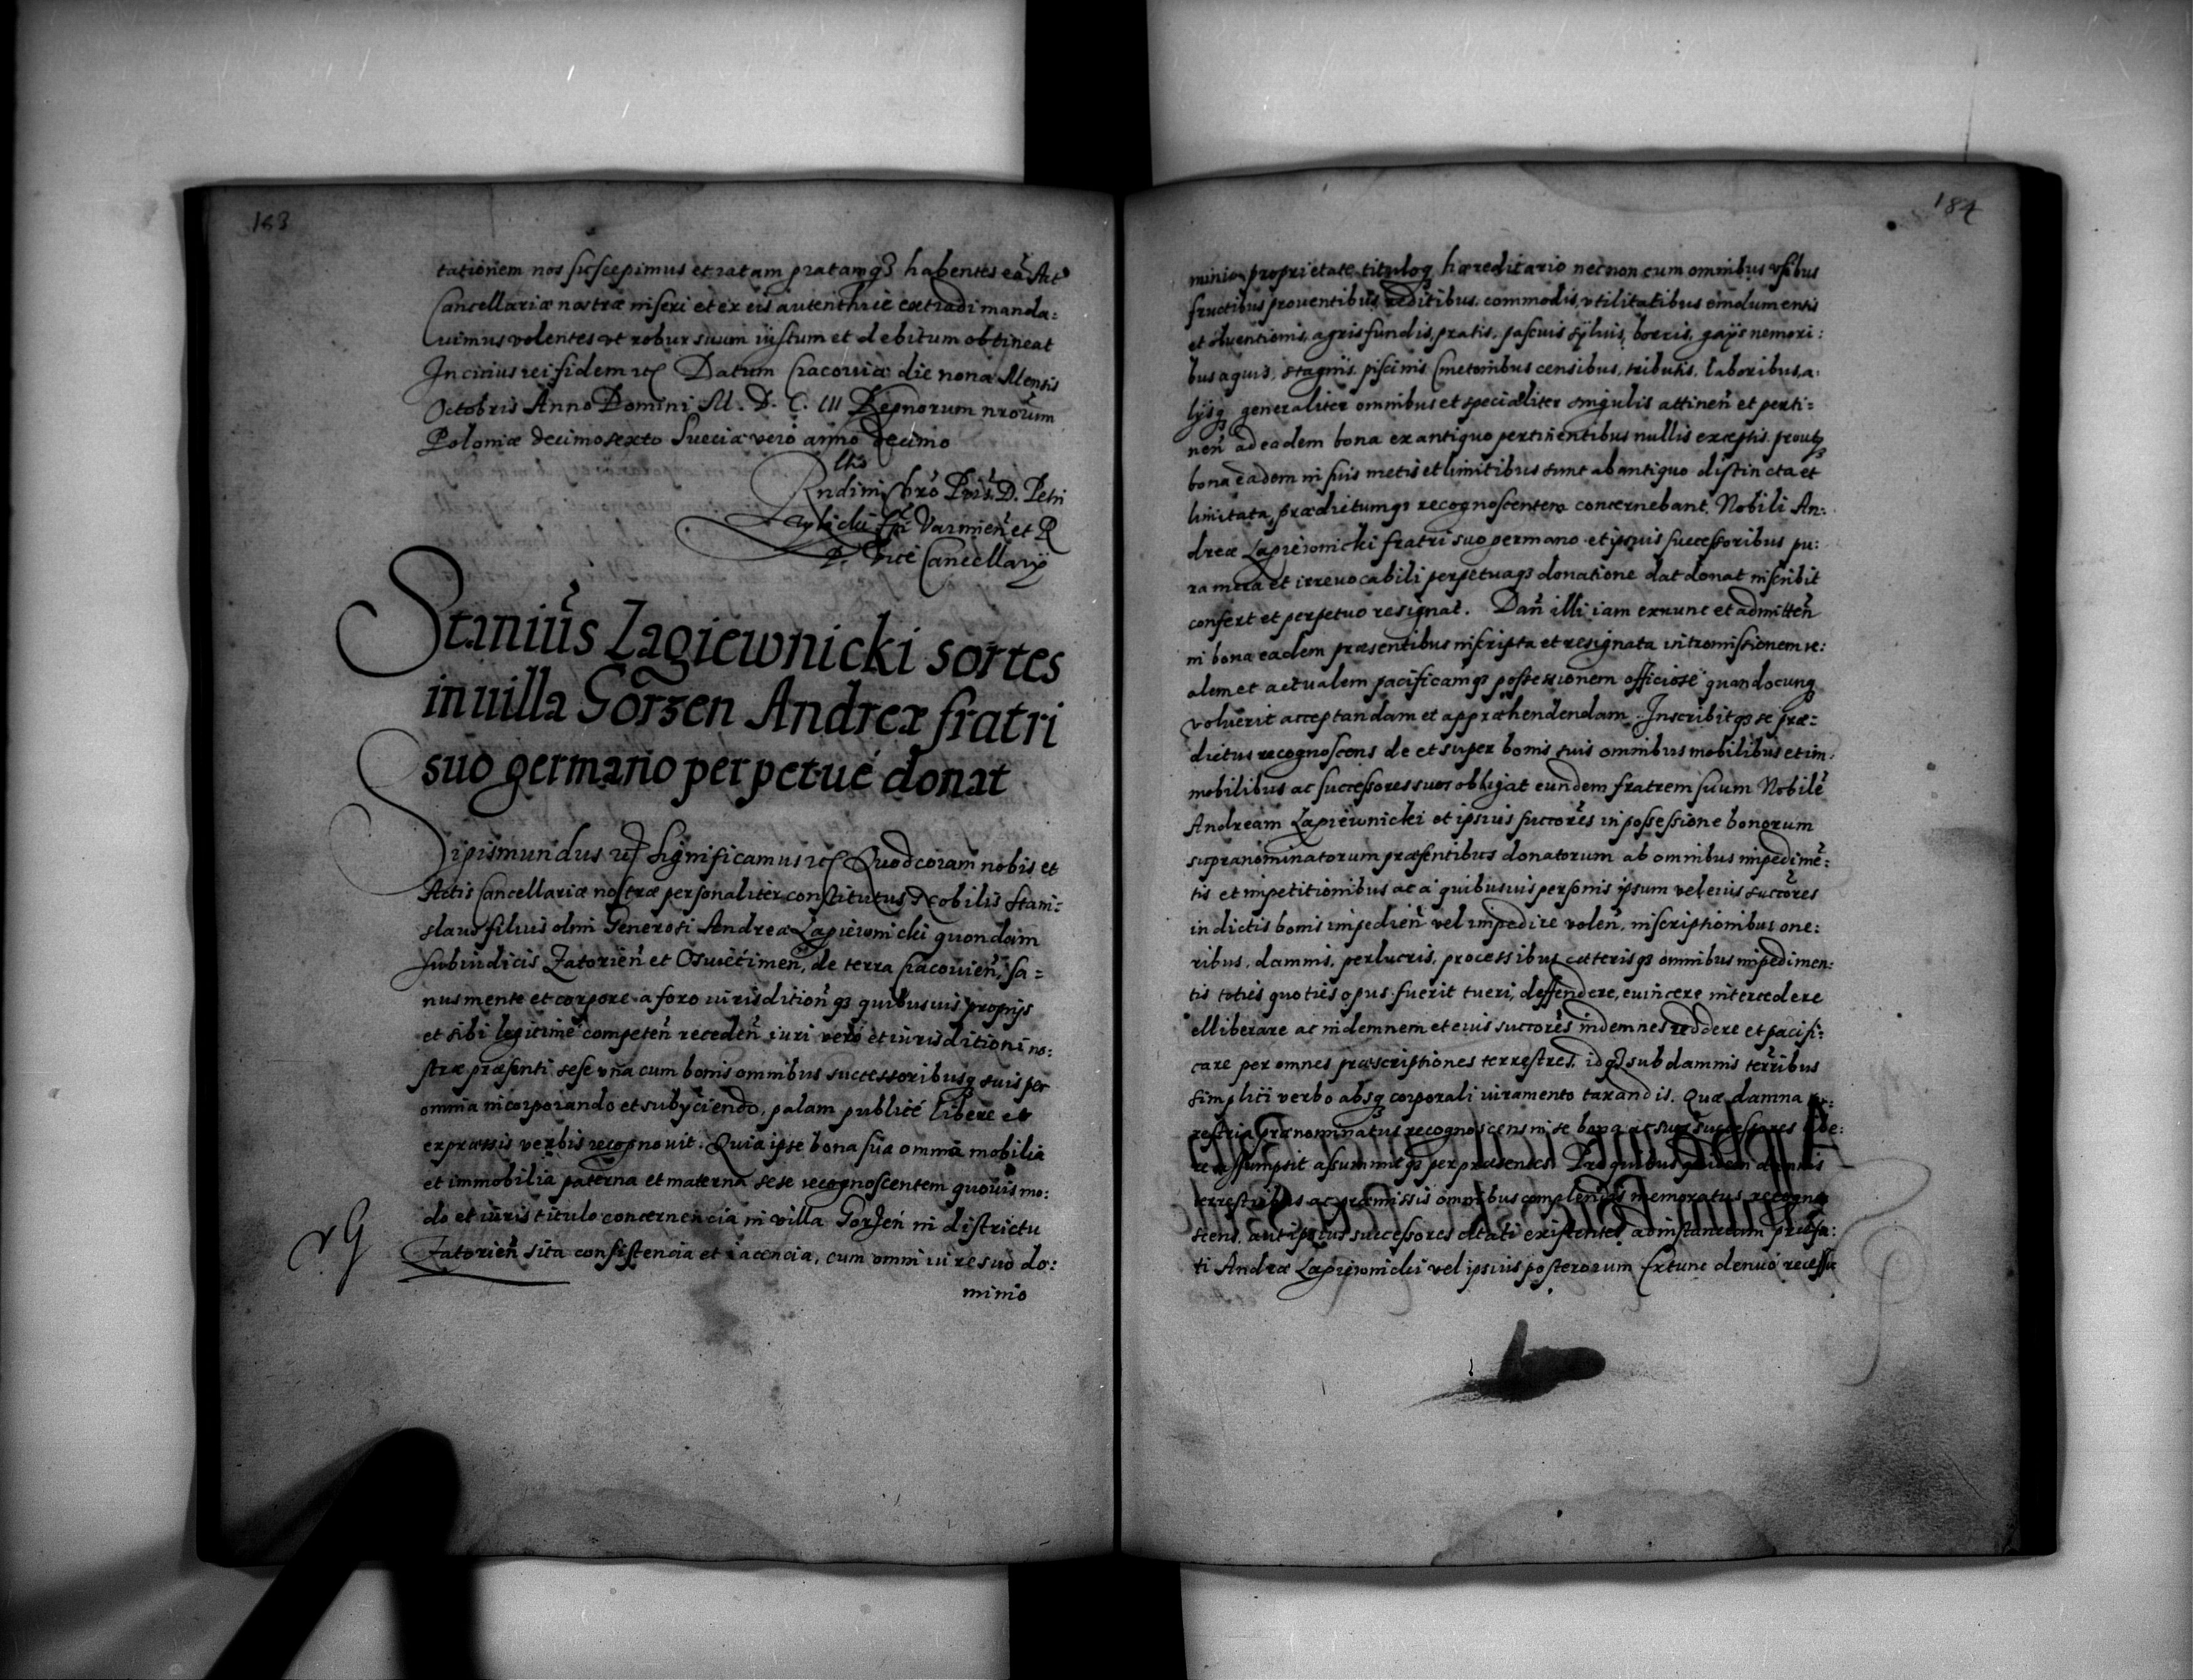 183
tationem nos suscepimus et ratam gratamqȝ habentes eã Act
Cancellariæ nostræ inseri et ex eis autenthice extradi manda:
uimus volentes vt robur suum iustum et debitum obtineat
In cuius rei fidem etc Datum Cracouiæ die nona Mensis
Octobris Anno Domini M. D. C. III Regnorum nrorum
Poloniæ decimo sexto Sueciæ vero anno decimo
Rndimi Chrō Pris D. Petri
Tylicki Epi Varmien et R
P. Vice Cancellarÿ
Stanius Łagiewnicki sortes
in uilla Gorzen Andreæ fratri
suo germano perpetué donat
Sigismundus etc Significamus etc Quod coram nobis et
Actis Cancellariæ nostræ personaliter constitutus Nobilis Stani:
slaus filius olim Generosi Andreæ Łagiewnicki quondam
Subiudicis Zatorien et Oswiecimen, de terra Cracouien, sa=
nus mente et corpore a foro iurisdition qȝ quibusuis proprijs
et sibi legitime competen receden iuri vero et iurisditioni no:
stræ præsenti sese vna cum bonis omnibus successoribusqȝ suis per
omnia incorporando et subÿciendo, palam publicé libere et
expressis verbis recognouit. Quia ipse bona sua omnia mobilia
et immobilia paterna et materna sese recognoscentem quouis mo:
do et iuris titulo concernencia in villa Gorzeń in districtu
Zatorien sita consistencia et iacencia, cum omni iure suo do:
minio
184
minio proprietate tituloqȝ hæreditario necnon cum omnibus vsibus
fructibus prouentibus reditibus, commodis, vtilitatibus emolumentis
et obuentionis, agris fundis, pratis, pascuis sÿluis, borris, gaÿs nemori:
bus aquis, stagnis, piscinis Cmetonibus censibus, tributis, laboribus, a:
lÿsqȝ generaliter omnibus et specialiter singulis attinen et perti=
nen ad eadem bona ex antiquo pertinentibus nullis exceptis proutqȝ
bona eadem in suis metis et limitibus sunt ab antiquo distincta et
limitata, prædictumqȝ recognoscentem concernebant, Nobili An:
dreæ Łagiewnicki fratri suo germano et ipsius successoribus pu:
ra mera et irreuocabili perpetuaqȝ donatione dat donat inscribit
confert et perpetuo resignat. Dan illi iam exnunc et admitten
in bona eadem præsentibus inscripta et resignata intromissionem re:
alem et actualem pacificamqȝ possessionem officiose quandocunqȝ
voluerit acceptandam et appræhendendam. Inscribitqȝ se præ=
dictus recognoscens de et super bonis suis omnibus mobilibus et im:
mobilibus ac successores suos obligat eundem fratrem suum Nobile
Andream Łagiewnicki et ipsius succores in possessione bonorum
supranominatorum præsentibus donatorum ab omnibus impedime:
tis et impetitionibus ac a quibusuis personis ipsum vel eius succores
in dictis bonis impedien vel impedire volen, inscriptionibus one:
ribus, damnis, perlucris, processibus cæterisqȝ omnibus impedimen:
tis toties quoties opus fuerit tueri, deffendere, euincere intercedere
elliberare ac indemnem et eius succores indemnes reddere et pacifi:
care per omnes præscriptiones terrestres, idqȝ sub damnis terribus
simplici verbo absqȝ corporali iuramento taxandis. Quæ damna
restria prænominatus recognoscens in se bona ac suos successores
assumpsit assumitqȝ per præsentes. Pro quibus quidem damnis
terrestribus ac præmissis omnibus complendis memoratus recogno
scens, aut ipsius successores citati existentes ad instantiam præfa:
ti Andreæ Łagiewnicki vel ipsius posterorum Extunc denuo recessu